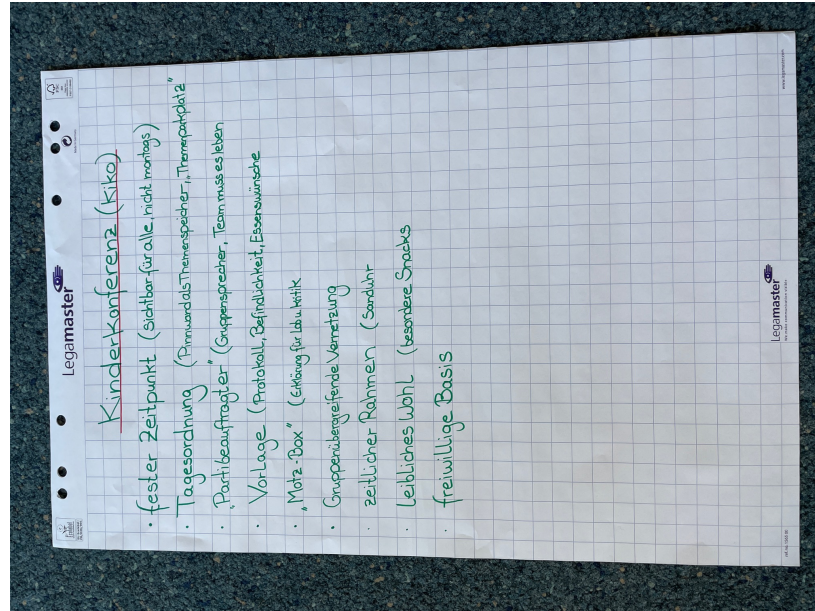 Legamaster
Kinderkonferenz (Kiko)
· fester Zeitpunkt (sichtbar für alle, nicht montags)
· Tagesordnung (Pinnwand als Themenspeicher, „Themenparkplatz"
· „Partibeauftragter" (Gruppensprecher, Team muss es leben
· Vorlage (Protokoll, Befindlichkeit, Essenswünsche
· „Motz-Box" (Erklärung für Lob u. Kritik
· Gruppenübergreifende Vernetzung
· zeitlicher Rahmen (Sanduhr
· Leibliches Wohl (besondere Snacks
· freiwillige Basis
Legamaster